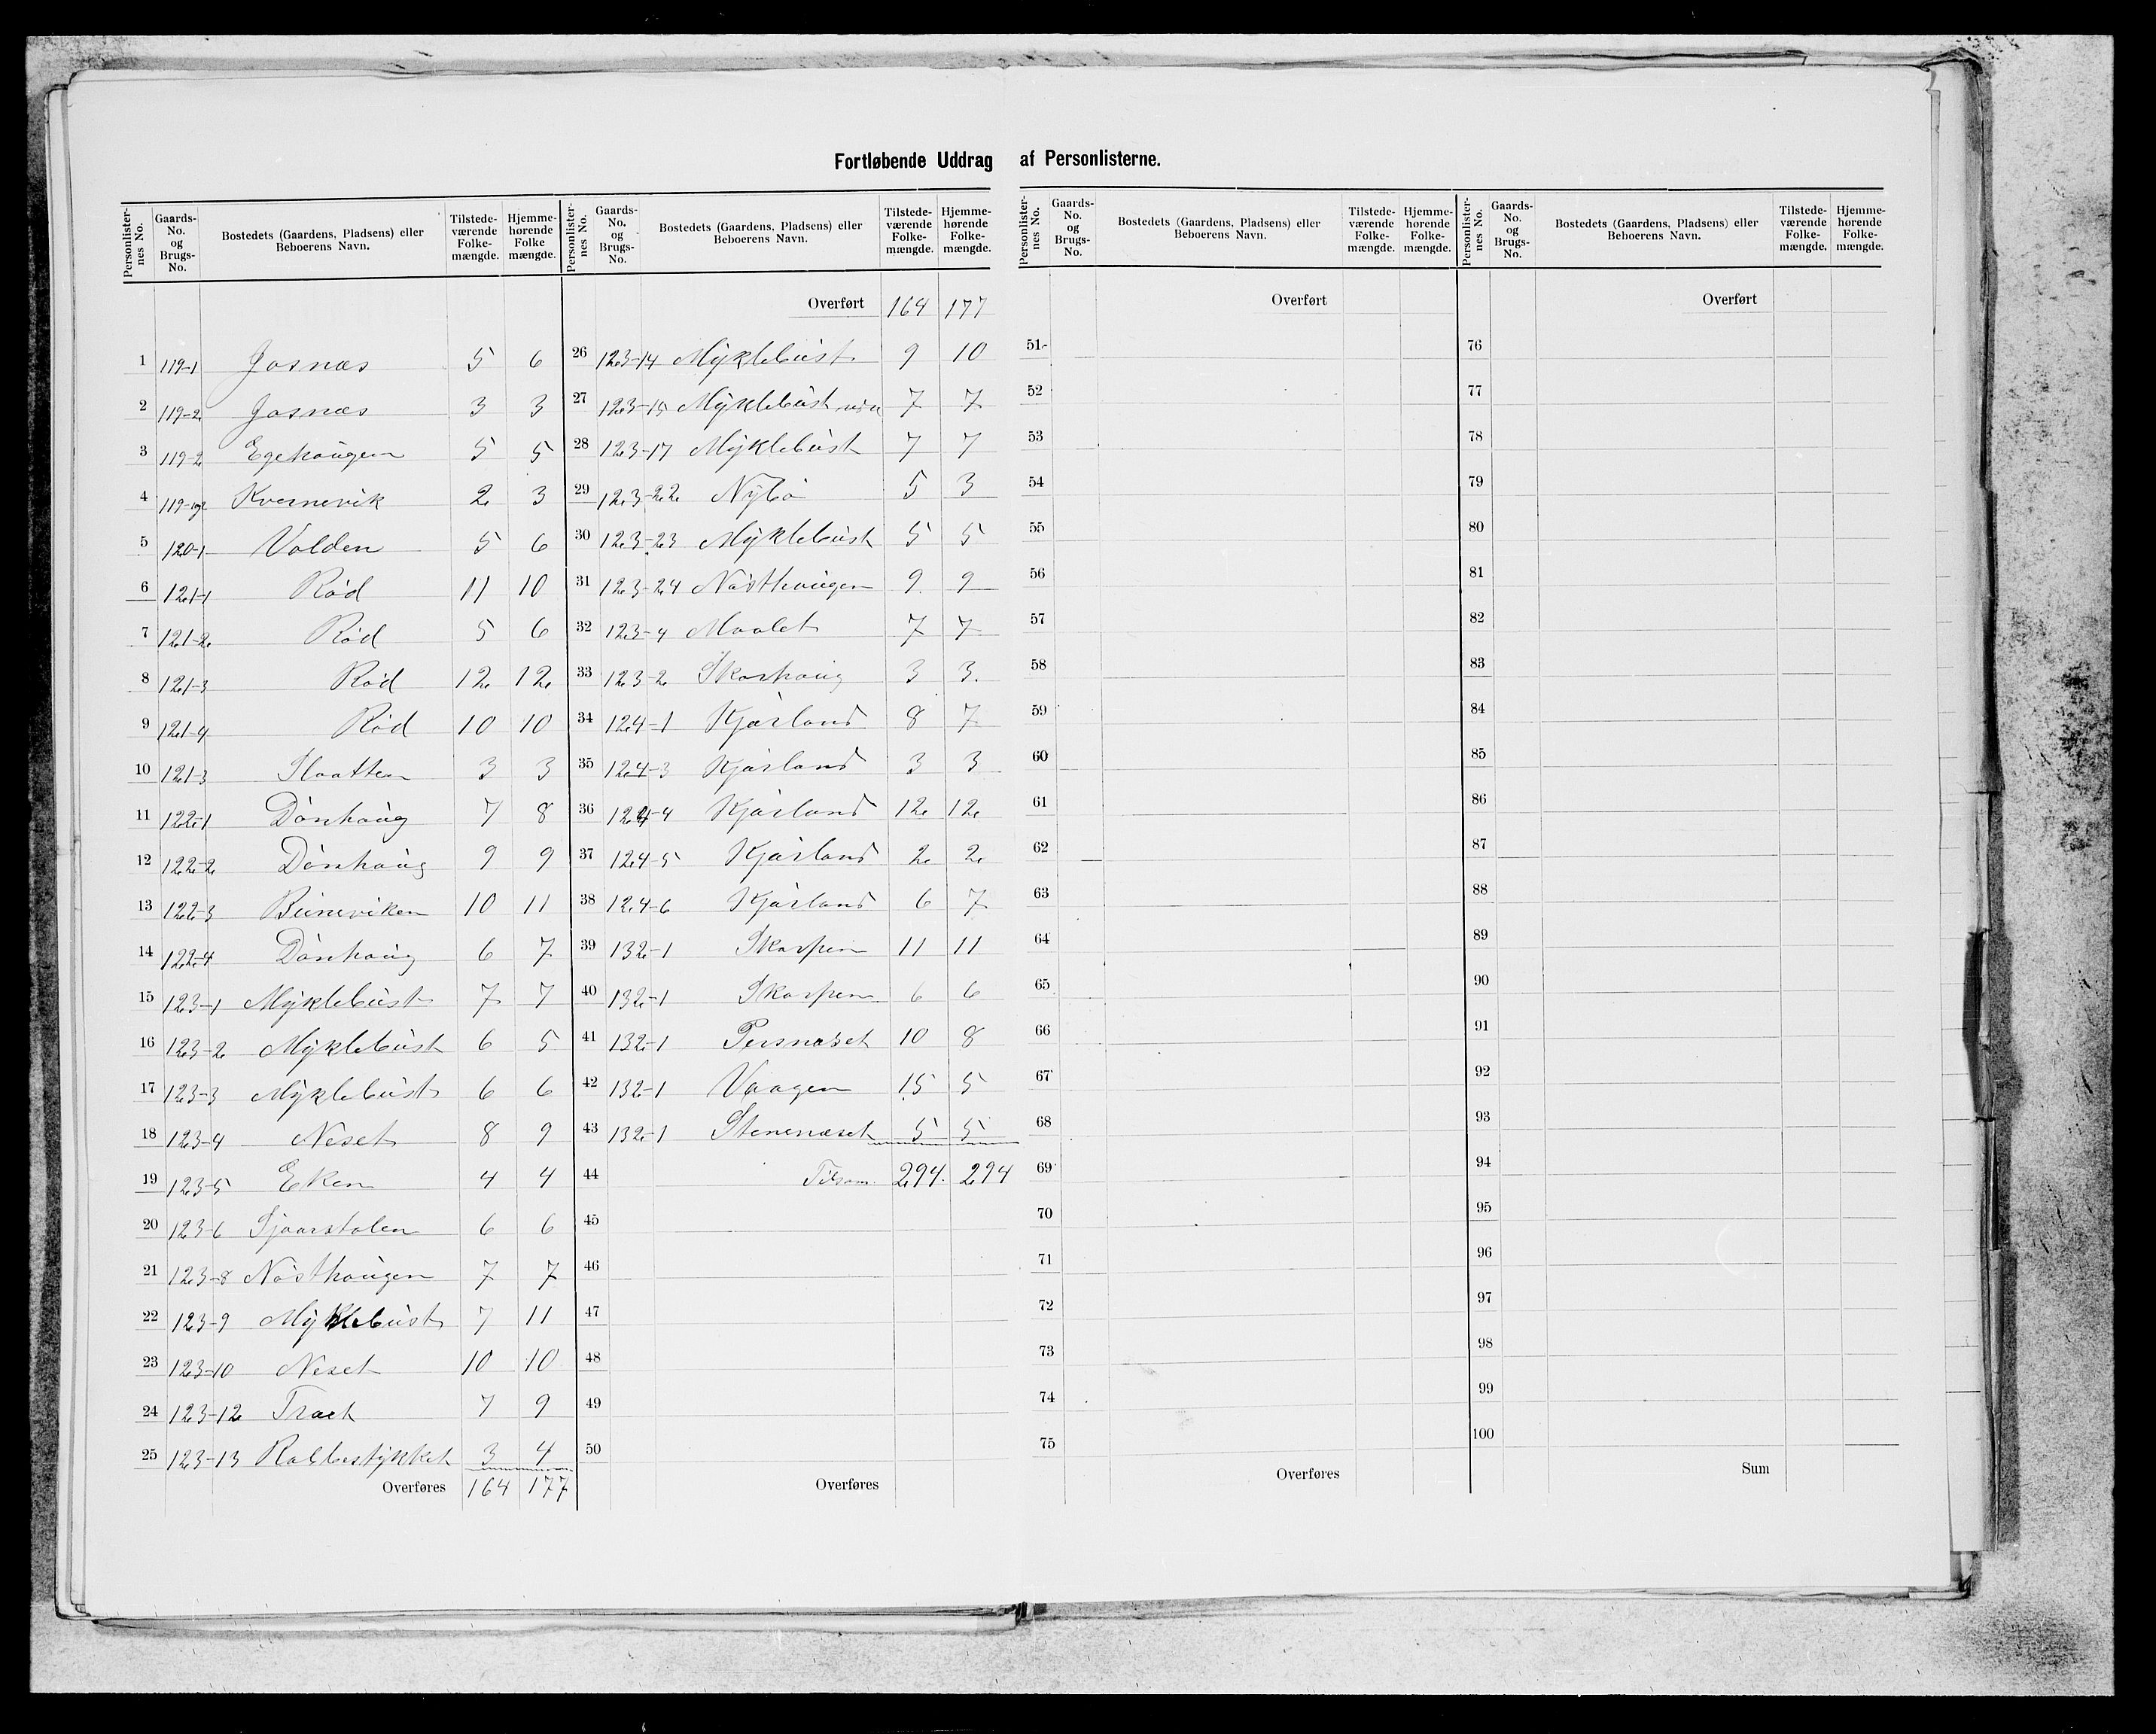 Fortløbende Uddrag af Personlisterne.
Personlisternes No. Gaards-No. og Brugs-No. Bostedets (Gaardens, Pladsens) eller Beboerens Navn. Tilstedeværende Folkemængde. Hjemmehørende Folkemængde.
1 119-1 Josnæs 5 6
2 119-2 Josnæs 3 3
3 119-2 Egehaugen 5 5
4 Kvernevik 2 3
5 120-1 Volden 5 6
6 121-1 Rød 11 10
7 121-2 Rød 5 6
8 121-3 Rød 12 12
9 121-4 Rød 10 10
10 121-3 Slaatten 3 3
11 122-1 Dønhaug 7 8
12 122-2 Dønhaug 9 9
13 122-3 Beineviken 10 11
14 122-4 Dønhaug 6 7
15 123-1 Myklebust 7 7
16 123-2 Myklebust 6 5
17 123-3 Myklebust 6 6
18 123-4 Neset 8 9
19 123-5 Eken 4 4
20 123-6 Sjoarstolen 6 6
21 123-8 Nøsthaugen 7 7
22 123-9 Myklebust 7 11
23 123-10 Neset 10 10
24 123-12 Traet 7 9
25 123-13 Rabbestykket 3 4
Overføres 164 177
Personlisternes No. Gaards-No. og Brugs-No. Bostedets (Gaardens, Pladsens) eller Beboerens Navn. Tilstedeværende Folkemængde. Hjemmehørende Folkemængde.
Overført 164 177
26 123-14 Myklebust 9 10
27 123-15 Myklebust 7 7
28 123-17 Myklebust 7 7
29 123-22 Nybø 5 3
30 123-23 Myklebust 5 5
31 123-24 Nøsthaugen 9 9
32 123-4 Maalet 7 7
33 123-2 Skorhaug 3 3
34 124-1 Kjørland 8 7
35 124-3 Kjørland 3 3
36 124-4 Kjørland 12 12
37 124-5 Kjørland 2 2
38 124-6 Kjørland 6 7
39 132-1 Skorpen 11 11
40 132-1 Skorpen 6 6
41 132-1 Persnæset 10 8
42 132-1 Vaagen 15 5
43 132-1 Stenenæset 5 5
44 Tilsam. 294 294
45
46
47
48
49
50
Overføres
Personlisternes No. Gaards-No. og Brugs-No. Bostedets (Gaardens, Pladsens) eller Beboerens Navn. Tilstedeværende Folkemængde. Hjemmehørende Folkemængde.
Overført
51
52
53
54
55
56
57
58
59
60
61
62
63
64
65
66
67
68
69
70
71
72
73
74
75
Overføres
Personlisternes No. Gaards-No. og Brugs-No. Bostedets (Gaardens, Pladsens) eller Beboerens Navn. Tilstedeværende Folkemængde. Hjemmehørende Folkemængde.
Overført
76
77
78
79
80
81
82
83
84
85
86
87
88
89
90
91
92
93
94
95
96
97
98
99
100
Sum